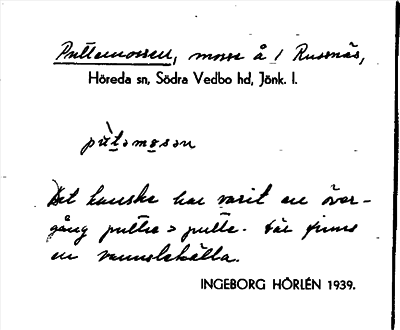 Puttemossen, mosse å / Russnäs,
Höreda sn, Södra Vedbo hd, Jönk. l.
pùtəmosən
Det kanske har varit en över-
gång putte > putte. Där finns
en vattenkälla.
INGEBORG HÖRLÉN 1939.